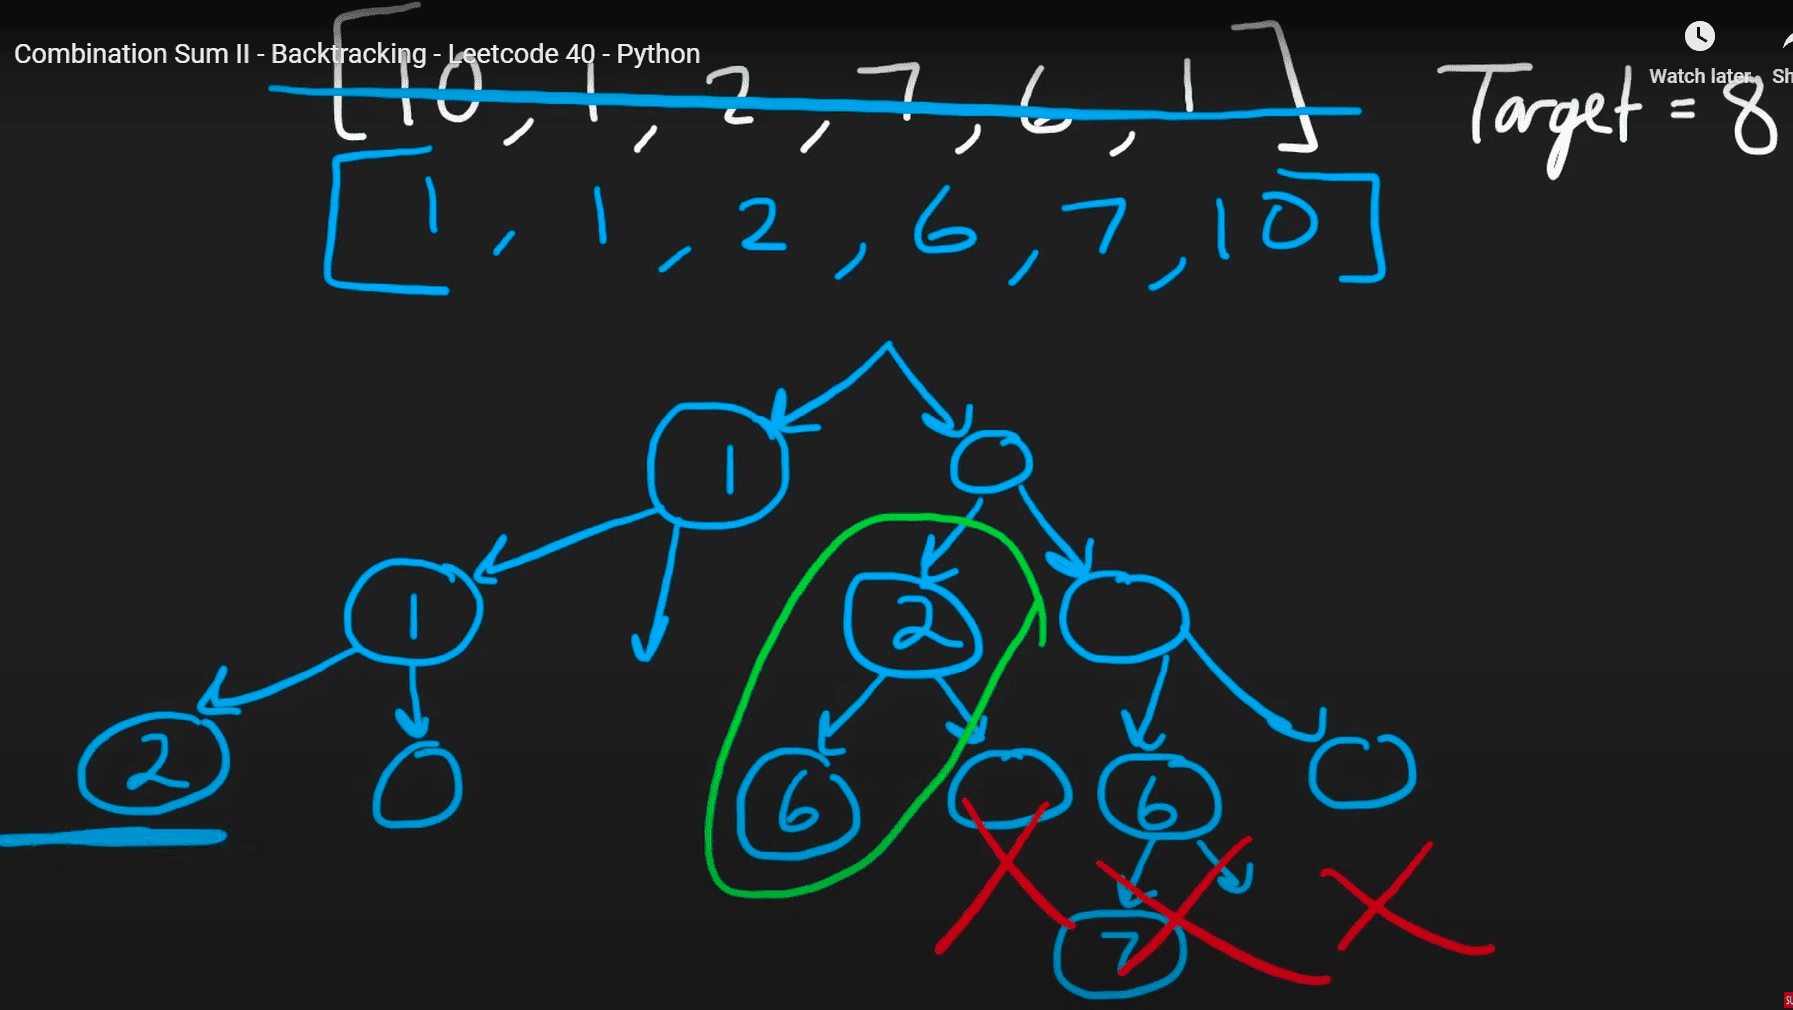 Combination Sum II - Backtracking - Leetcode 40 - Python
Watch later
Sh
[10, 1, 2, 7, 6, 1] Target = 8
[1, 1, 2, 6, 7, 10]
1
1 2
2 6 6
7
SU